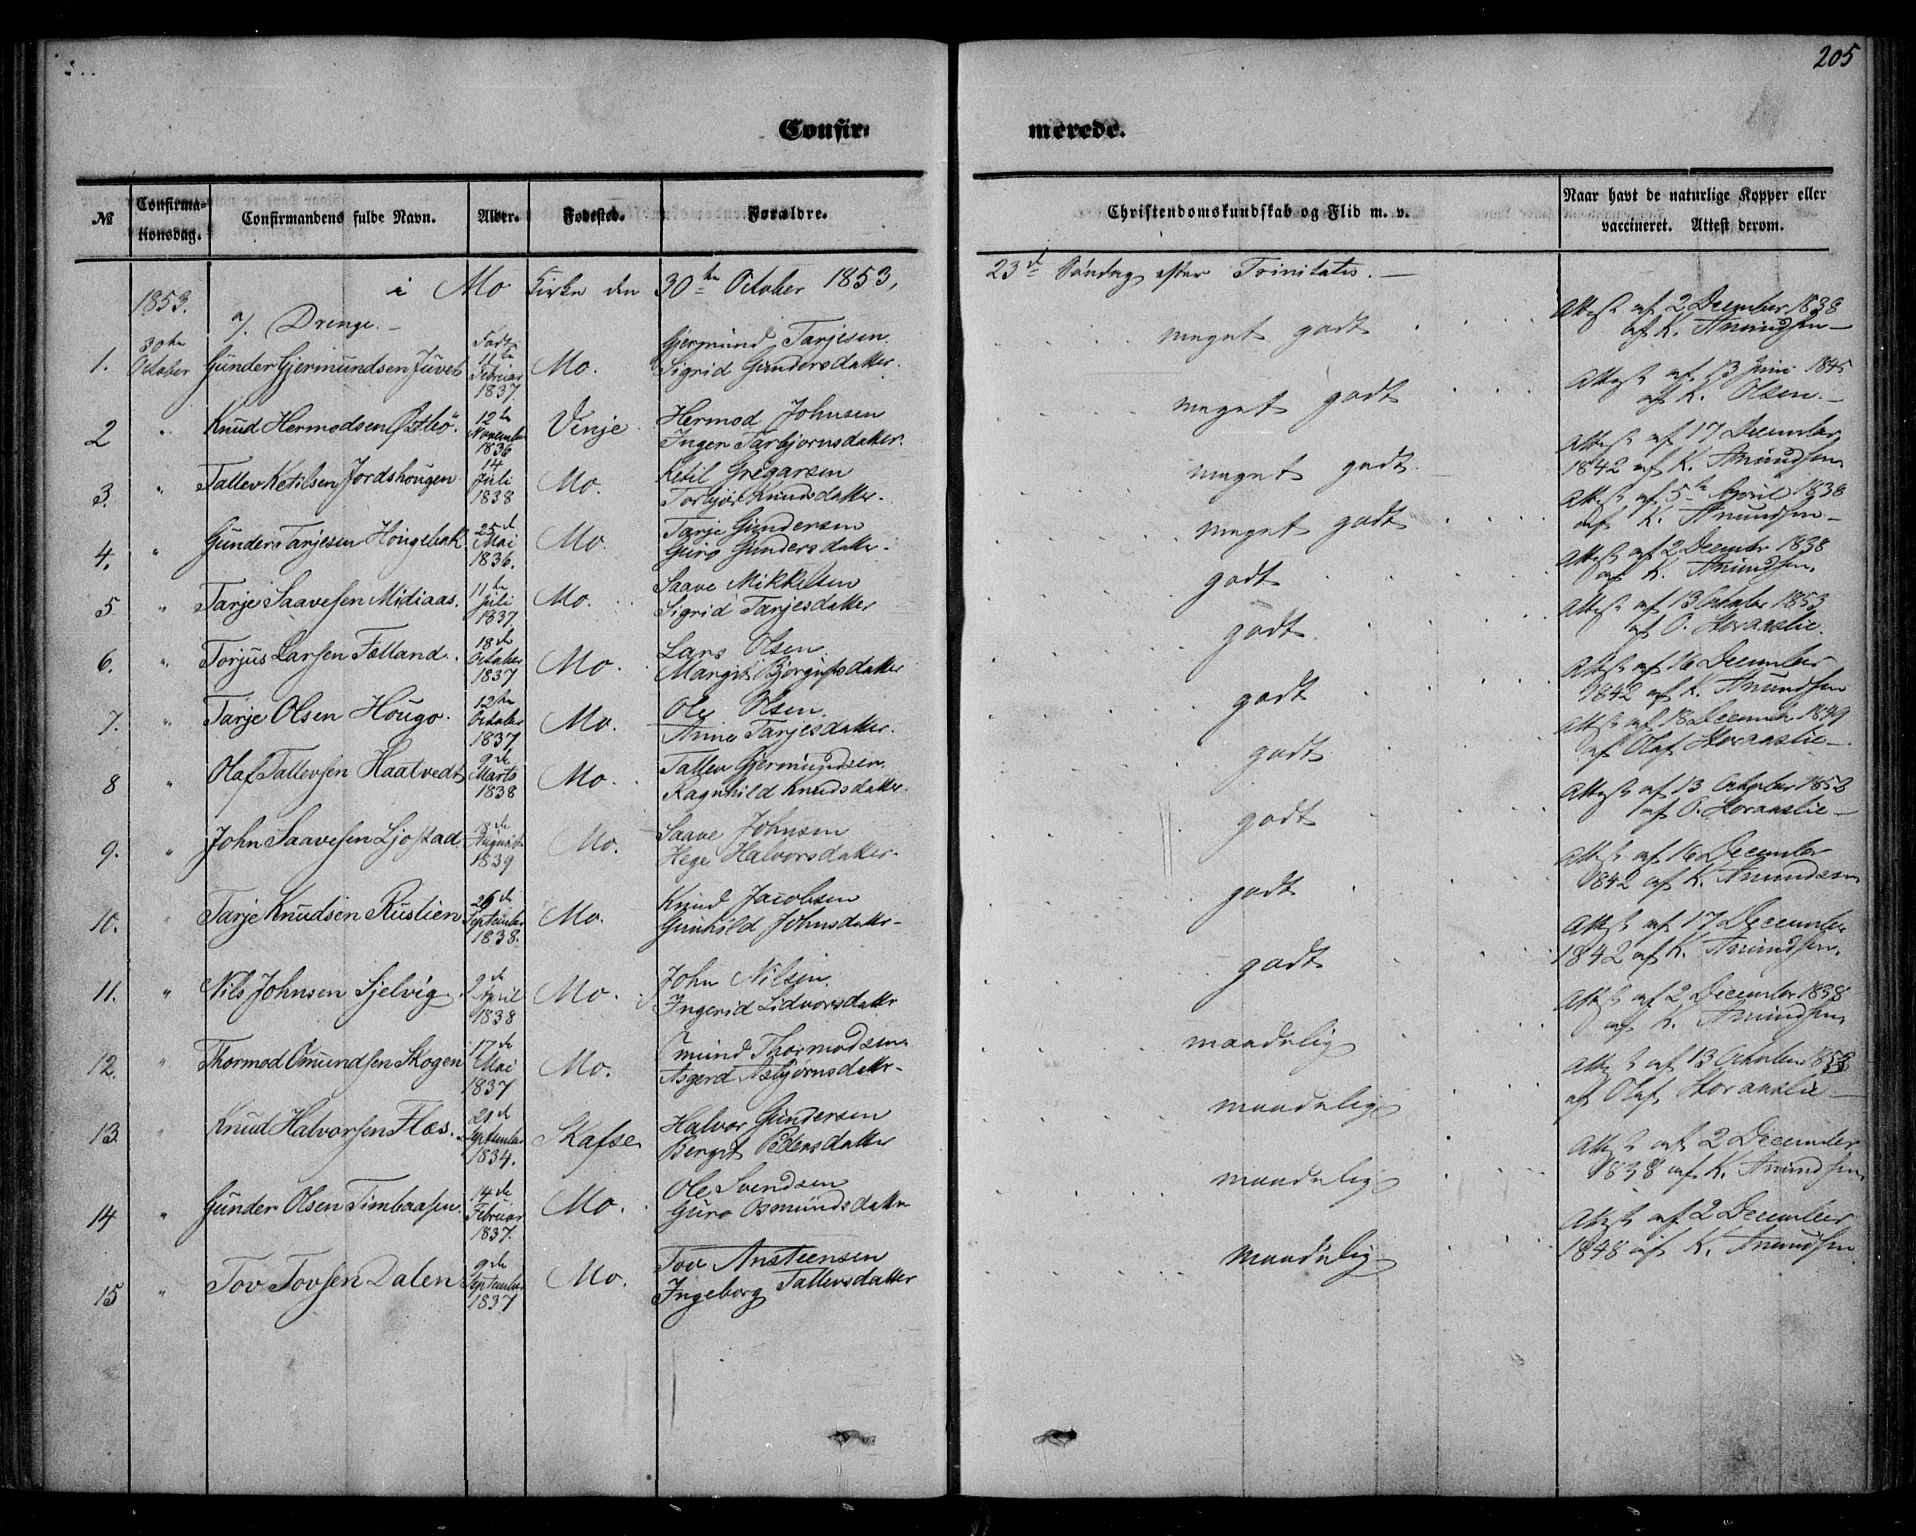 205
Confir= merede.
№ Confirma-tionsdag. Confirmandens fulde Navn. Alder. Fødested. Forældre. Christendomskundskab og Flid m. v. Naar havt de naturlige Kopper eller vaccineret. Attest derom.
i Mo Kirke den 30te October 1853, 23de Søndag efter Trinitatis. —
1853.
a/. Drenge. —
1. 30te October Gunder Gjermundsen Juvet Født 11te Februar 1837. Mo. Gjermund Tarjesen. Sigrid Gundersdatter. meget godt Attest af 2 December 1838 af K. Amundsen —
2 " Knud Hermodsen Østbø. 12te November 1836 Vinje. Hermod Johnsen Inger Tarbjørnsdatter. meget godt Attest af 13 Juni 1845 af K. Olsen. —
3. " Tallev Ketilsen Jordshougen 14 Juli 1838 Mo. Ketil Gregarsen Torbjør Knudsdatter. meget godt. Attest af 17 December 1842 af K. Amundsen
4. " Gunder Tarjesen Hougebak 25de Mai 1836. Mo. Tarje Gundersen Guro Gundersdatter. meget godt Attest af 5te April 1838 af K. Amundsen —
5 " Tarje Saavesen Midiaas. 11te Juli 1837. Mo. Saave Mikkelsen Sigrid Tarjesdatter godt Attest af 2 December 1838 af K. Amundsen.
6. " Torjus Larsen Felland. 18de October 1837 Mo. Lars Olsen. Margit Bjørgufsdatter godt Attest af 13 October 1853 af O. Horaaslie.
7. " Tarje Olsen Hougo. 12te October 1837 Mo. Ole Olsen. Anne Tarjesdatter. godt Attest af 16 December 1842 af K. Amundsen
8 " Olaf Tallevsen Haatvedt 9de Marts 1838 Mo. Tallev Gjermundsen. Ragnhild Knudsdatter. godt Attest af 18 December 1849 af Olaf Horaaslie —
9. " John Saavesen Ljostad. 18de August 1839 Mo. Saave Johnsen Hege Halvorsdatter. godt Attest af 13 October 1853 af O. Horaaslie —
10. " Tarje Knudsen Rustlien 26de September 1838. Mo. Knud Jacobsen Gunhild Johnsdatter. godt Attest af 16 December 1842 af K. Amundsen
11. " Nils Johnsen Sjelvig. 9de April 1838 Mo. John Nilsen. Ingerid Lidvorsdatter godt Attest af 17 December 1842 af K. Amundsen.
12. " Thormod Omundsen Skogen 17de Mai 1837 Mo. Omund Thormodsen Asgerd Asbjørnsdatter. maadelig Attest af 2 December 1838 af K. Amundsen
13. " Knud Halvorsen Flæs. 21de September 1834. Skafse Halvor Gundersen Bergit Pedersdatter maadelig Attest af 13 October 1853 af Olaf Horaaslie —
14 " Gunder Olsen Timbaasen. 14de Februar 1837. Mo. Ole Svendsen Guro Osmundsdatter maadelig Attest af 2 December 1838 af K. Amundsen
15 " Tov Tovsen Dalen 9de September 1837 Mo. Tov Ansteensen Ingeborg Tallevsdatter maadelig Attest af 2 December 1848 af K. Amundsen